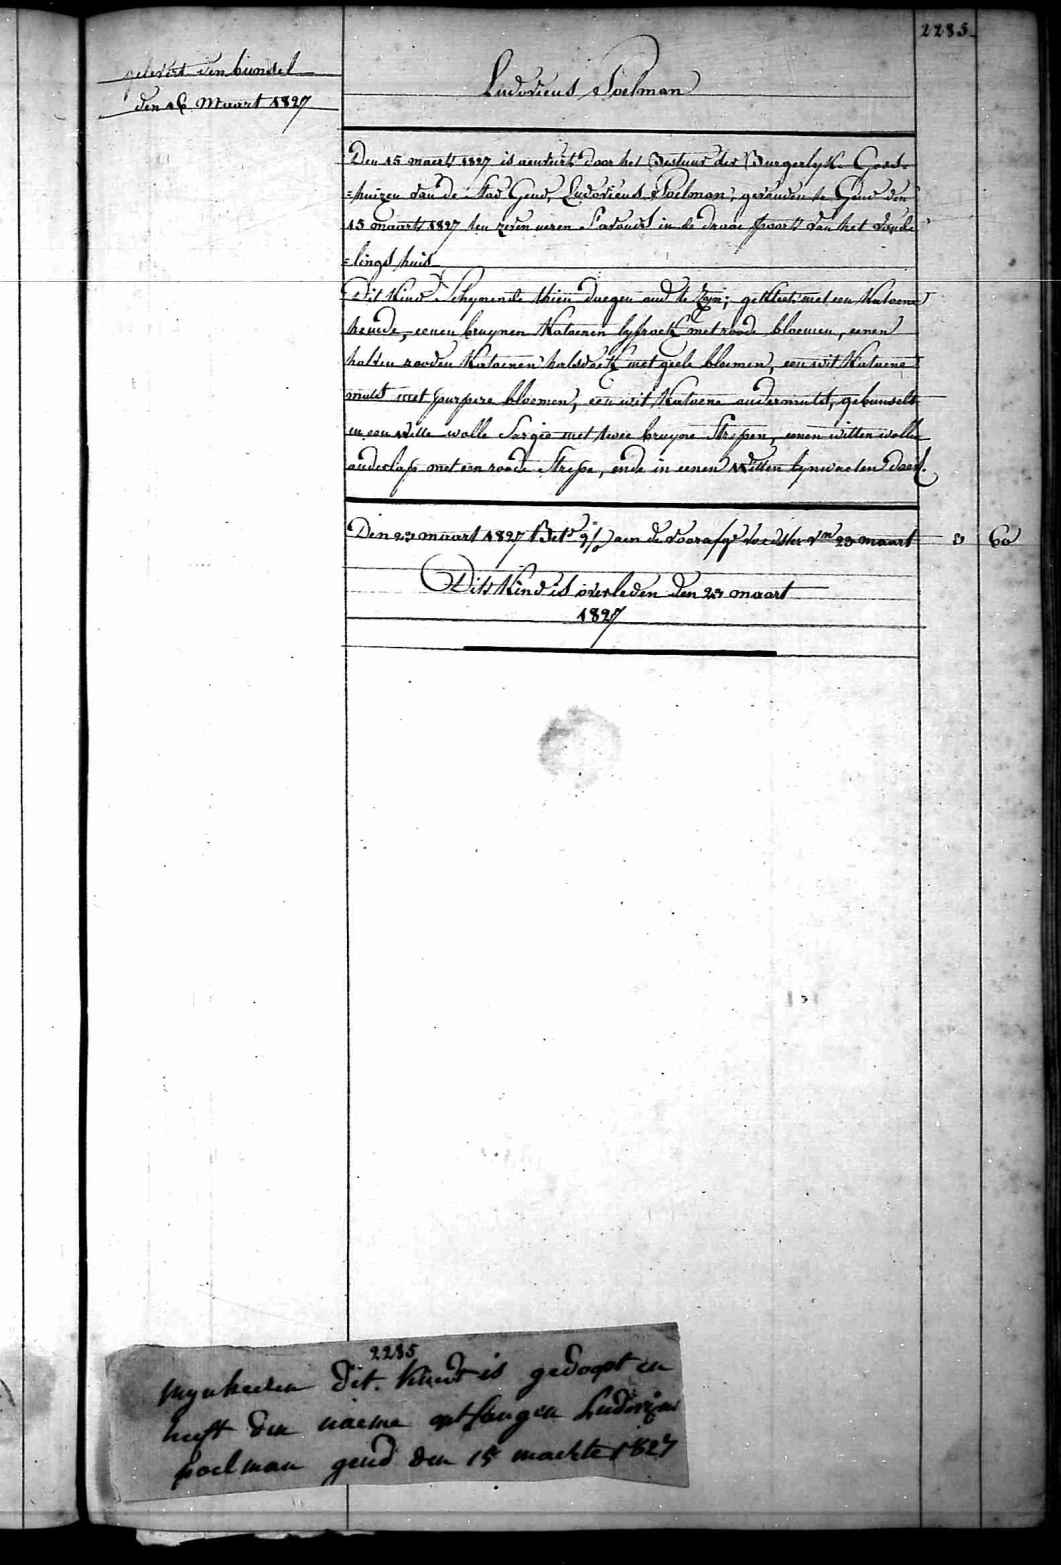 2285
gelevert den bundel
den 16 Maart 1827
Ludovicus Poelman
Den 15 maert 1827 is aenveirt door het Bestuur der Burgerlyke Gods-
=huizen van de stad Gend, Ludovicus Poelman, gevonden te Gend den
15 maart 1827 ten zeven ueren s'avonds in de draai poort van het vonde
=lings huis
Dit Kind schynende thien daegen oud te zyn; gekleet met een Katoene
hemde, eenen bruynen Katoenen lyfrock met roode bloemen, eenen
halven rooden Katoenen halsdoek met geele bloemen, een wit Katoene
muts met purpere bloemen, een wit Katoene ondermuts, gebunselt
in een witte wolle Sargie met twee bruyne Strepen, eenen witten wollen
onderlap met een roode Strepe, ende in eenen Witten lynwaeten doek.
Den 23 maart 1827 Bet. aen de voorafge voedster 23 maart 3 60
Dits Kind is overleden den 23 maart
1827
2285
mynheeren dit. kindt is gedoopt en
heeft den naeme ontfangen Ludovicus
poelman gend den 15 maerte 1827